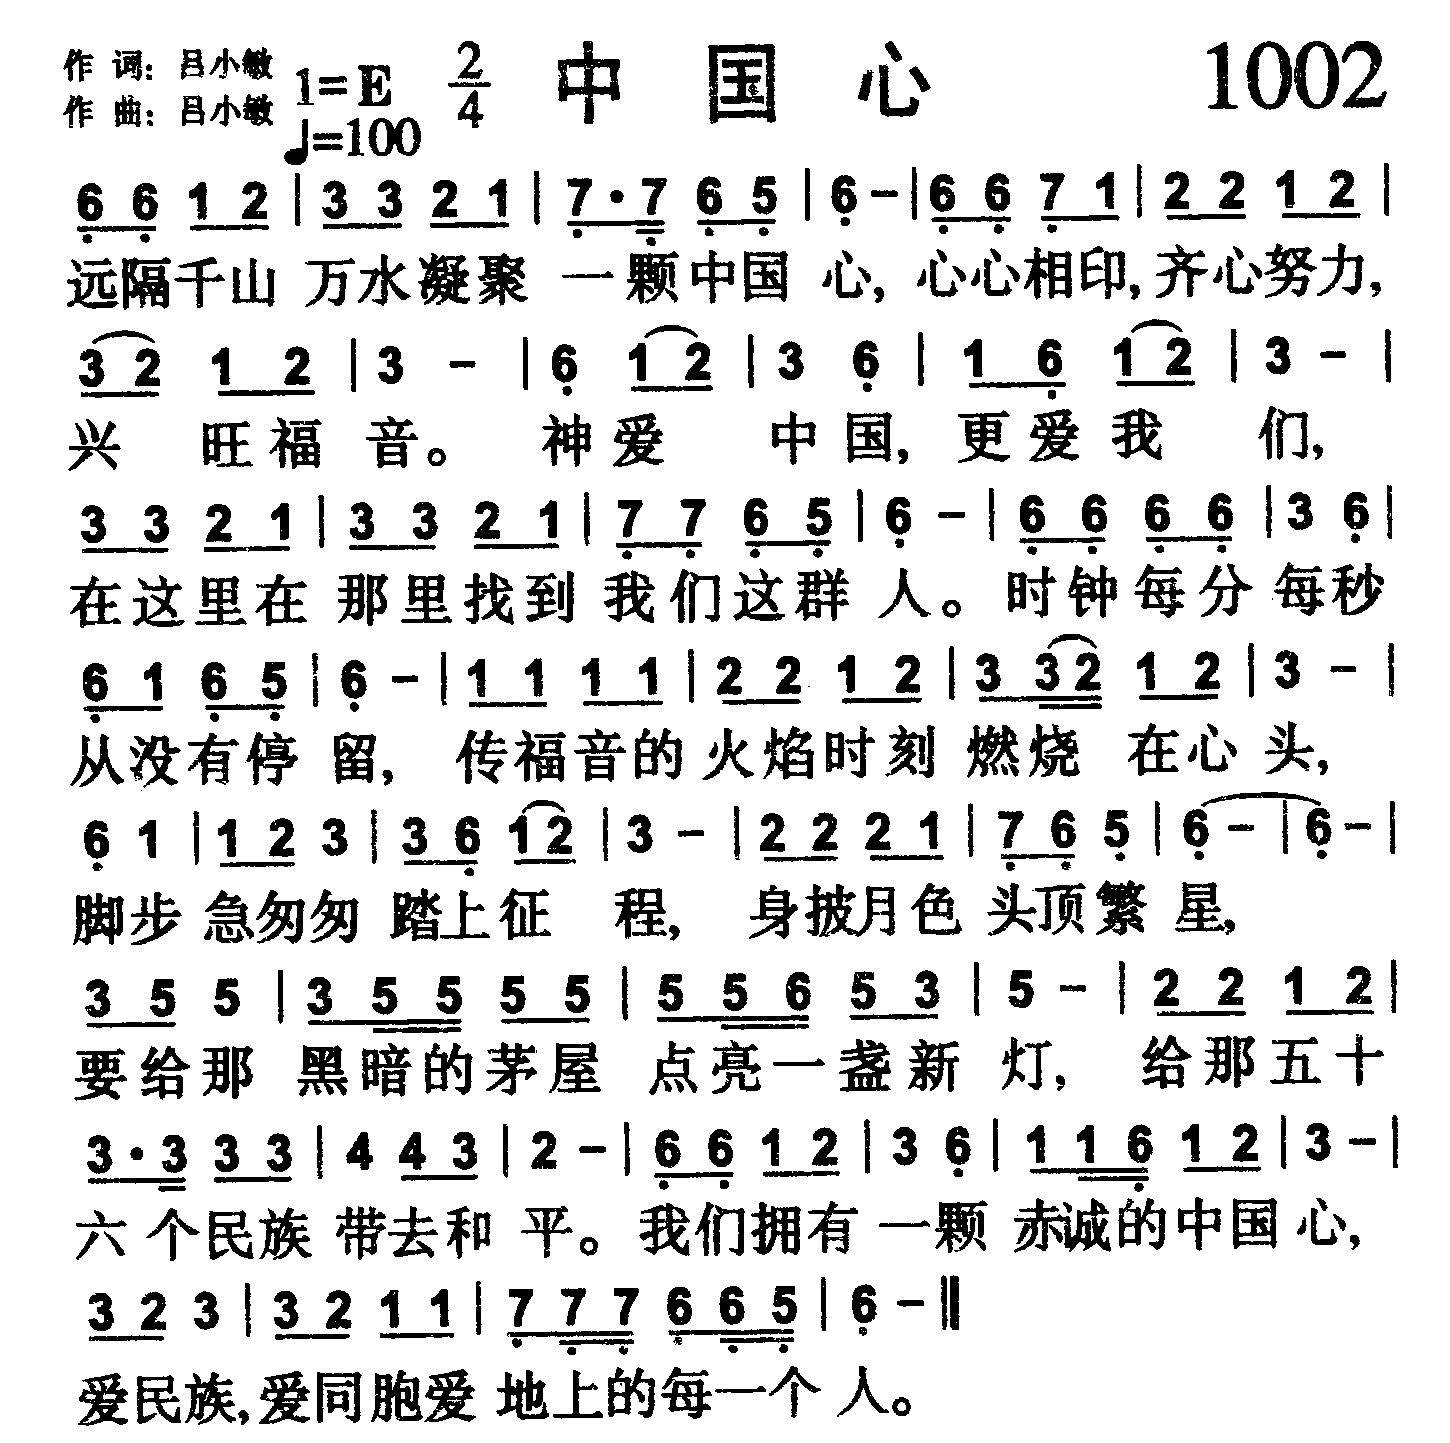 作 词：吕小敏 1=E 2/4 中 国 心 1002
作 曲：吕小敏 ♩=100
6 6 1 2 | 3 3 2 1 | 7 · 7 6 5 | 6 – | 6 6 7 1 | 2 2 1 2 |
远隔千山 万水凝聚 一颗中国 心，心心相印，齐心努力，
3 2 1 2 | 3 – | 6 1 2 | 3 6 | 1 6 1 2 | 3 – |
兴 旺福 音。 神爱 中国，更爱我 们，
3 3 2 1 | 3 3 2 1 | 7 7 6 5 | 6 – | 6 6 6 6 | 3 6 |
在这里在 那里找到 我们这群 人。时钟每分 每秒
6 1 6 5 | 6 – | 1 1 1 1 | 2 2 1 2 | 3 3 2 1 2 | 3 – |
从没有停 留， 传福音的 火焰时刻 燃烧 在心 头，
6 1 | 1 2 3 | 3 6 1 2 | 3 – | 2 2 2 1 | 7 6 5 | 6 – | 6 – |
脚步 急匆匆 踏上征 程， 身披月色 头顶繁 星，
3 5 5 | 3 5 5 5 5 | 5 5 6 5 3 | 5 – | 2 2 1 2 |
要给那 黑暗的茅屋 点亮一盏新 灯， 给那五十
3 · 3 3 3 | 4 4 3 | 2 – | 6 6 1 2 | 3 6 | 1 1 6 1 2 | 3 – |
六 个民族 带去和 平。我们拥有 一颗 赤诚的中国 心，
3 2 3 | 3 2 1 1 | 7 7 7 6 6 5 | 6 – ‖
爱民族，爱同胞爱 地上的每一个 人。